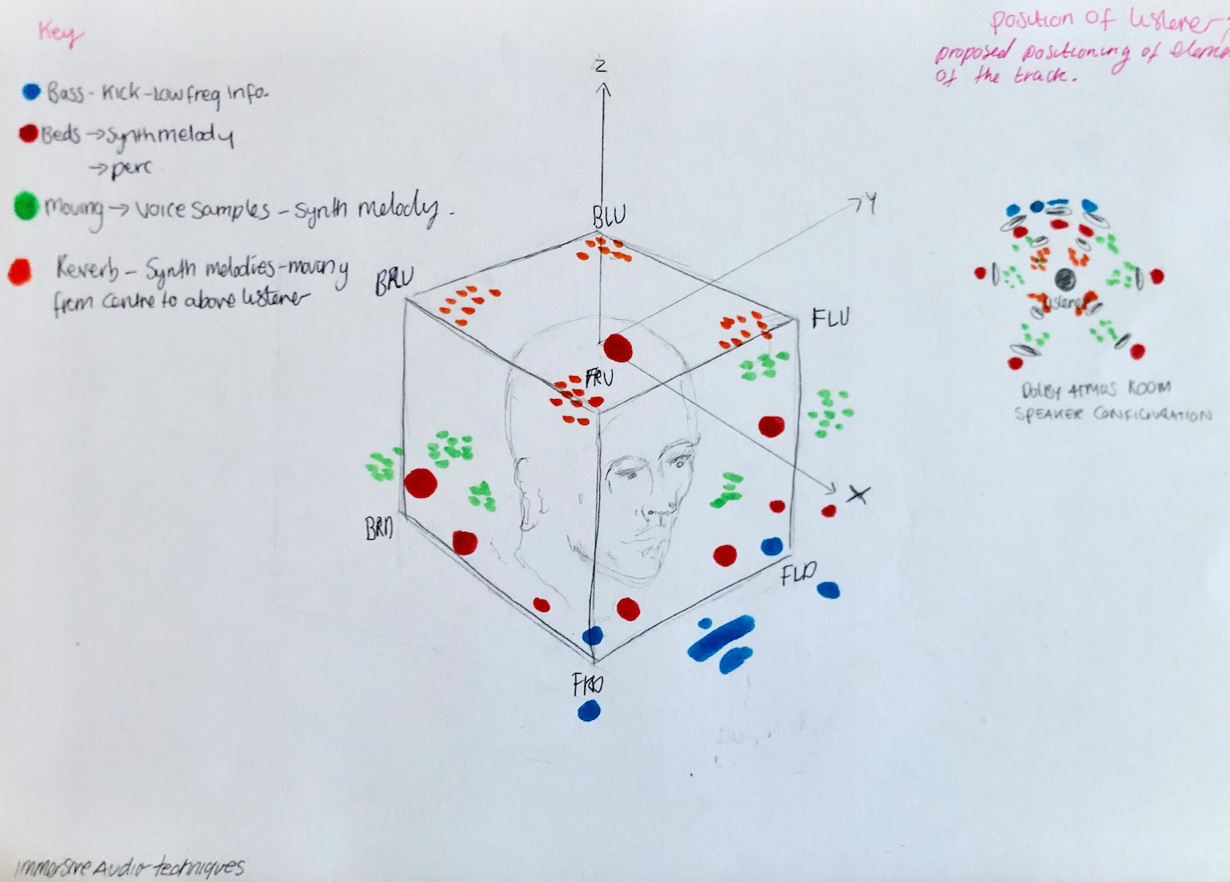 Key
Bass - Kick - Low freq info.
Beds → Synth melody
→ perc
Moving → Voice samples - synth melody.
Reverb - Synth melodies - moving
from centre to above listener
position of listener,
proposed positioning of
of the track.
Z
Y
X
BLU
BRU
FLU
FRU
BRD
FLD
FRD
listener
DOLBY ATMOS ROOM
SPEAKER CONFIGURATION
Immersive Audio techniques